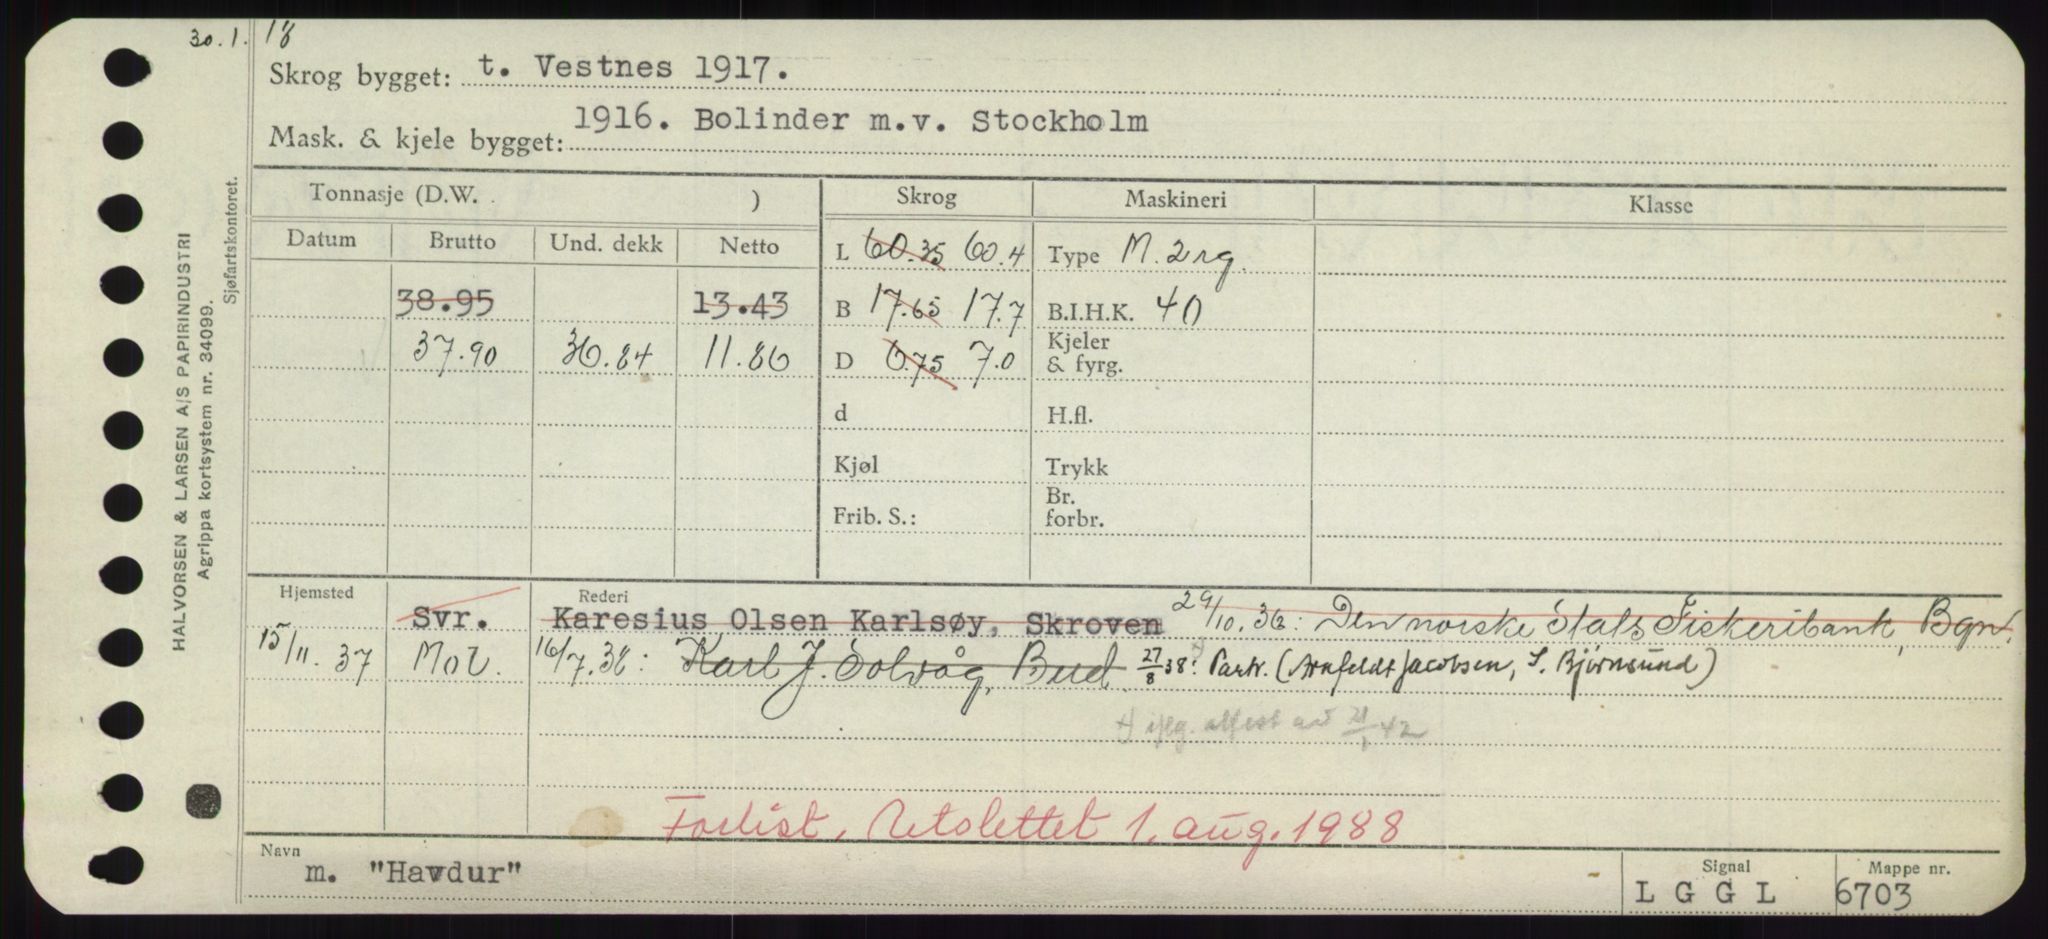 30.1.18
Skrog bygget: t. Vestnes 1917.
Mask. & kjele bygget: 1916. Bolinder m.v. Stockholm
Tonnasje (D.W. ) Skrog Maskineri Klasse
Datum Brutto Und. dekk Netto L 60.35 60.4 Type M. 2 rg.
38.95 13.43 B 17.65 17.7 B.I.H.K. 40
37.90 36.84 11.86 D 6.75 7.0 Kjeler & fyrg.
d H.fl.
Kjøl Trykk
Frib. S.: Br. forbr.
Hjemsted Rederi
Svr. Karesius Olsen Karlsøy, Skroven 29/10.36: Den norske Stats Fiskeribank, Bgn.
15/11. 37 Mol. 16/7.38: Karl J. Solvåg, Bud. 27/8 38: +) Partr. (Arnfeldt Jacobsen, S. Bjørnsund)
+) iflg. attest av 21/1 42
Forlist, Utslettet 1. aug. 1988
Navn Signal Mappe nr.
m. "Havdur" L G G L 6703
HALVORSEN & LARSEN A/S PAPIRINDUSTRI
Agrippa kortsystem nr. 34099.
Sjøfartskontoret.